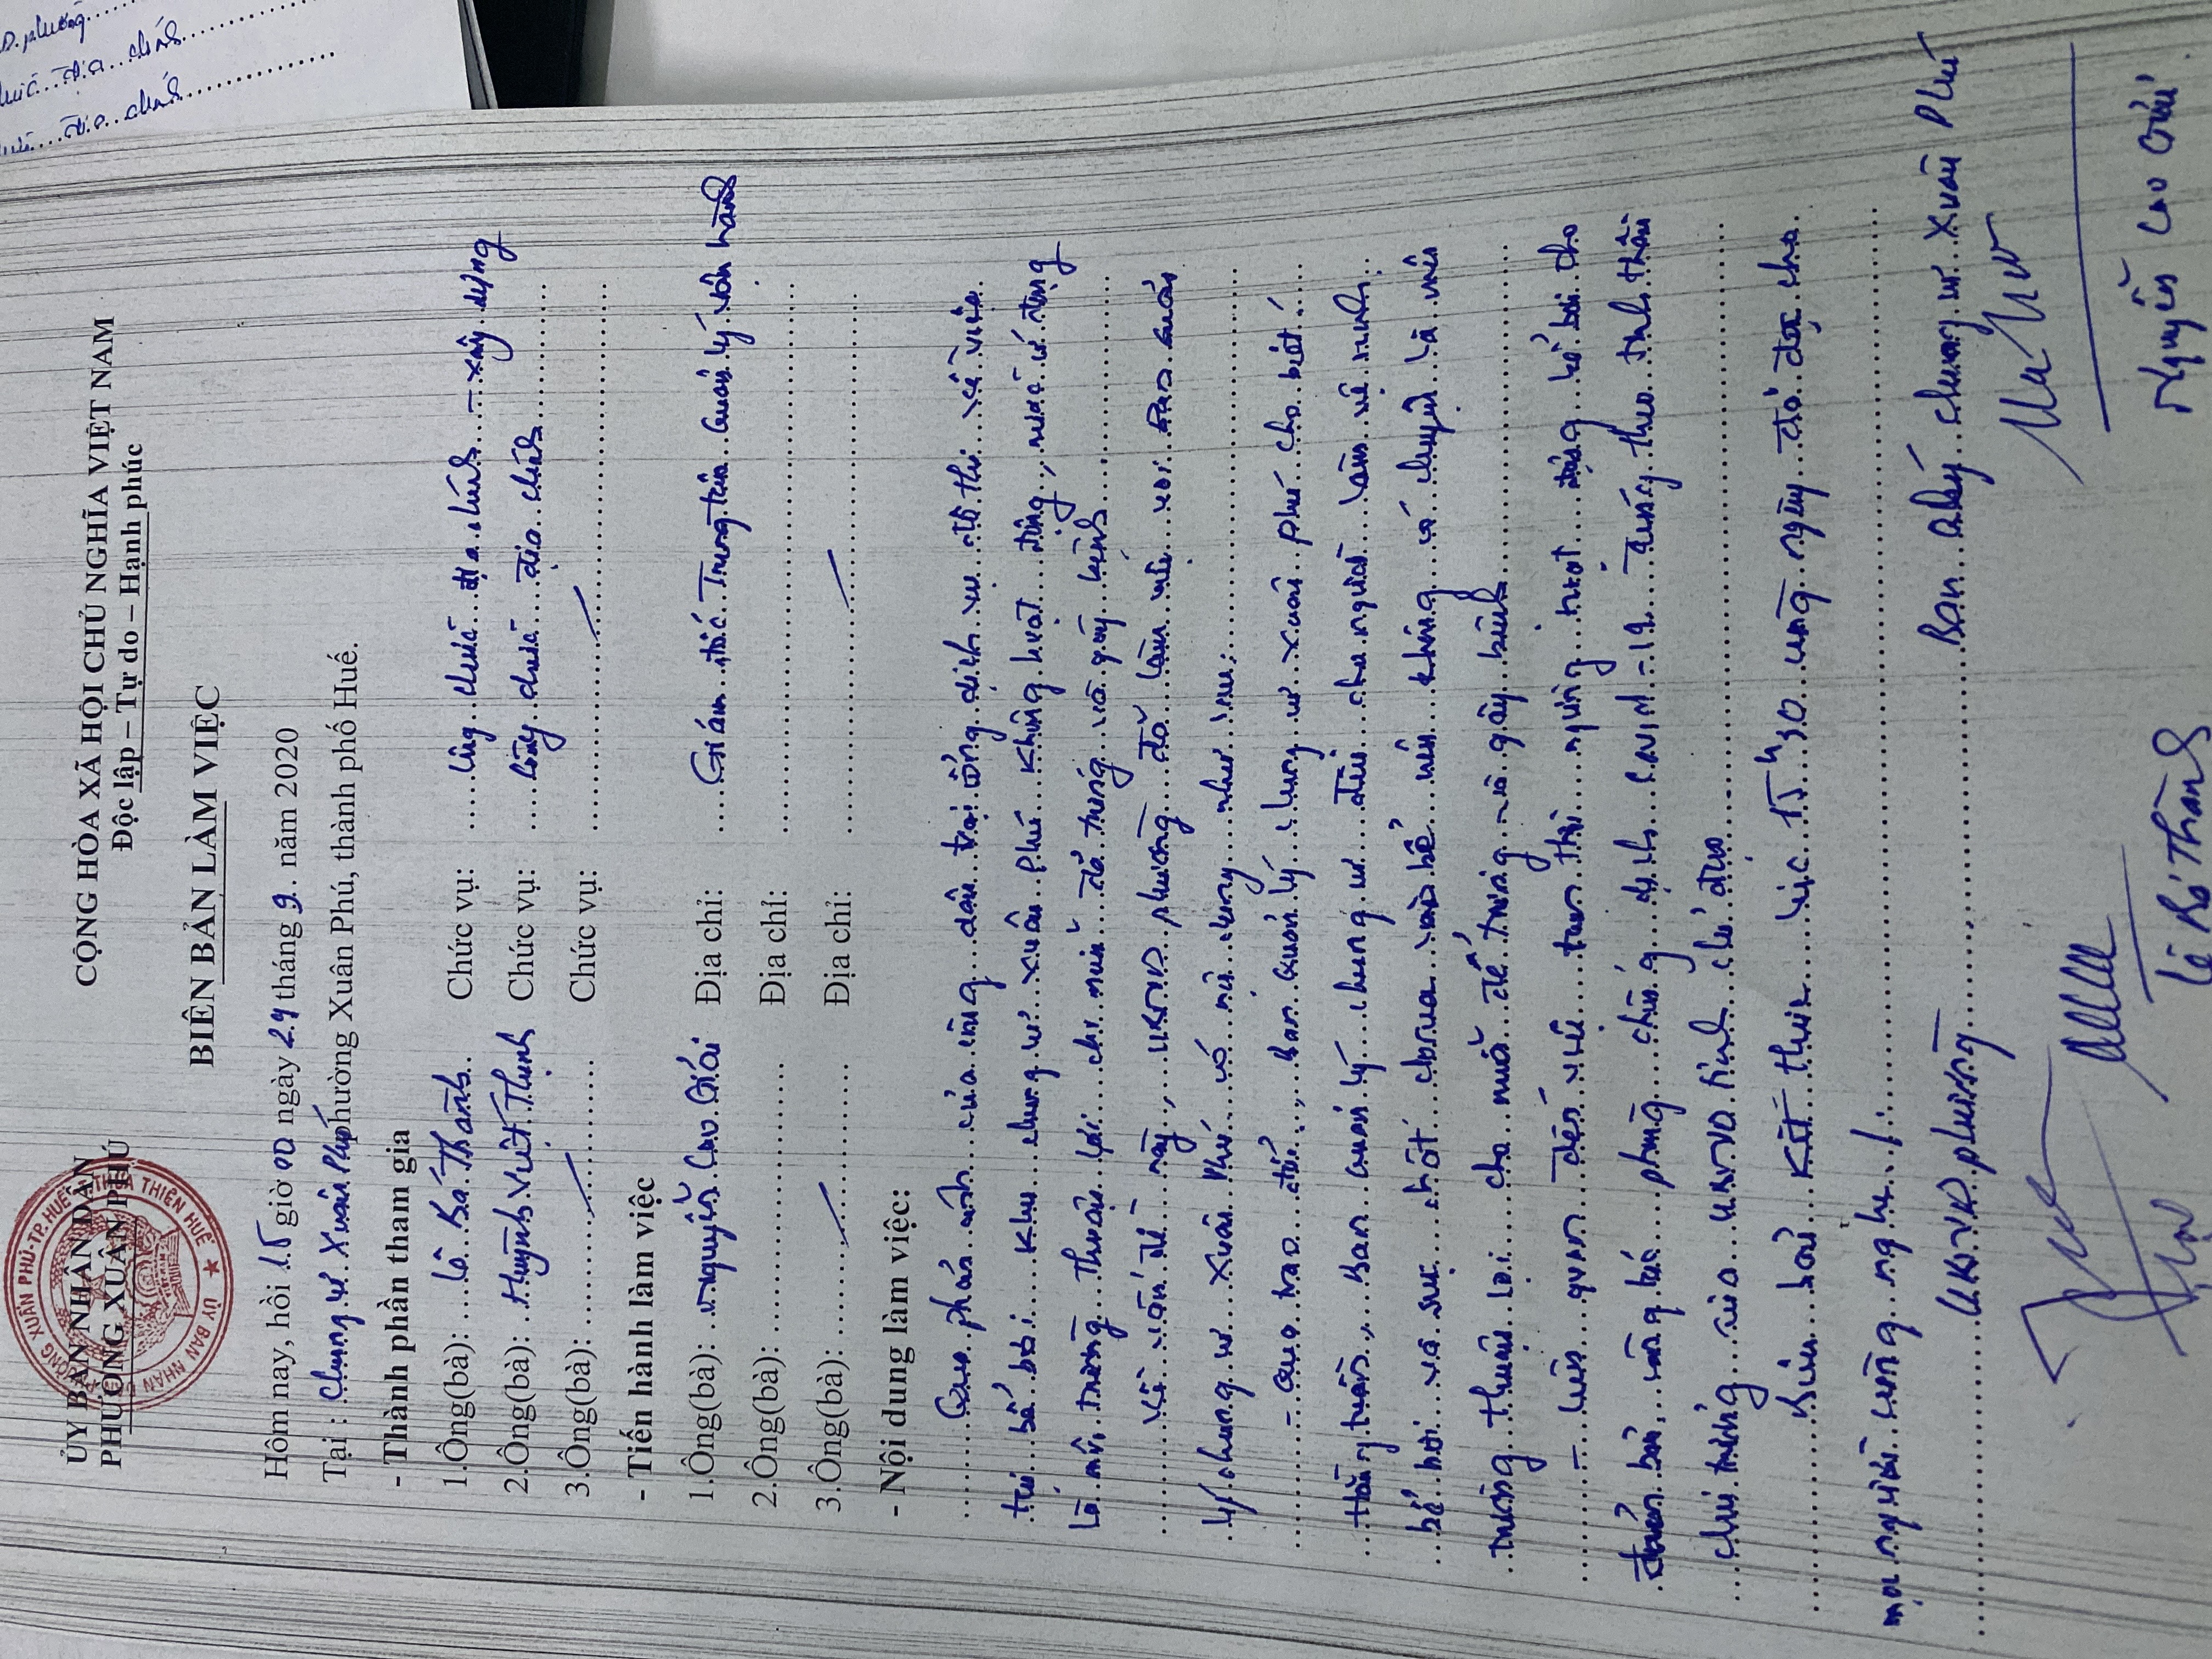 ỦY BAN NHÂN DÂN
PHƯỜNG XUÂN PHÚ
CỘNG HÒA XÃ HỘI CHỦ NGHĨA VIỆT NAM
Độc lập – Tự do – Hạnh phúc
BIÊN BẢN LÀM VIỆC
Hôm nay, hồi 15 giờ 00 ngày 24 tháng 9 năm 2020
Tại : Chung cư Xuân Phú phường Xuân Phú, thành phố Huế.
- Thành phần tham gia
1.Ông(bà): Lê Bá Thành Chức vụ: Công chức địa chính – xây dựng
2.Ông(bà): Huỳnh Viết Thịnh Chức vụ: Công chức địa chính
3.Ông(bà): Chức vụ:
- Tiến hành làm việc
1.Ông(bà): Nguyễn Cao Giải Địa chỉ: Giám đốc Trung tâm quản lý vận hành
2.Ông(bà): Địa chỉ:
3.Ông(bà): Địa chỉ:
- Nội dung làm việc:
Qua phản ánh của công dân tại cổng dịch vụ đô thị về việc
tại bể bơi khu chung cư Xuân Phú không hoạt động, nước ứ đọng
là môi trường thuận lợi cho muỗi đẻ trứng và gây bệnh
Về vấn đề này, UBND phường đã làm việc với Ban quản
lý chung cư Xuân Phú có nội dung như sau:
- Qua trao đổi, Ban quản lý chung cư Xuân Phú cho biết
Hằng tuần, Ban quản lý chung cư đều cho người làm vệ sinh
bể bơi và sục chlorua vào bể nên không có chuyện là môi
trường thuận lợi cho muỗi đẻ trứng và gây bệnh
- Liên quan đến việc tạm thời ngừng hoạt động bể bơi cho
đảm bảo công tác phòng chống dịch Covid-19 đúng theo tinh thần
chủ trương của UBND tỉnh chỉ đạo
Biên bản kết thúc lúc 15h30 cùng ngày đã đọc cho
mọi người cùng nghe./.
UBND phường Ban quản lý chung cư Xuân Phú
Lê Bá Thành Nguyễn Cao Giải